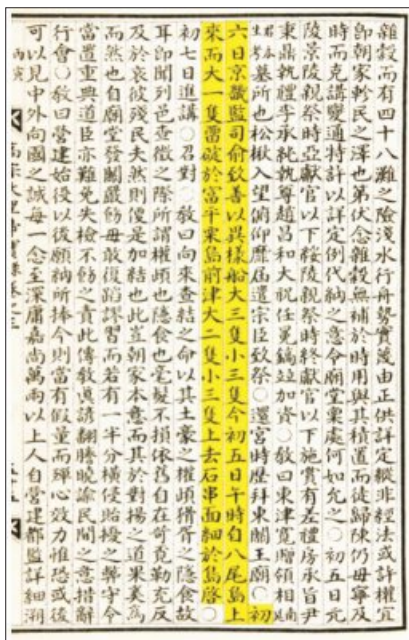 雜穀而有四十八灘之險淺水行舟勢實湊由正供詳定縱非經法或許權宜
卽朝家軫民之澤也第伏念雜穀無補於時用與其積置而徒歸陳仍毋寧及
時而克講變通特許以詳定例代納之意令廟堂稟處何如允之○初五日元
陵景陵親祭時亞獻官以下綏陵親祭時終獻官以下施賞有差禮房承旨尹
秉鼎執禮李承純執尊趙昌和大祝任冕鎬竝加資○敎曰東津寬贈領相
墓所也松楸入望俯仰靡屆遣宗臣致祭○還宮時歷拜東關王廟○初
六日京畿監司兪致善以異樣船大三隻小三隻今初五日午時自八尾島上
來而大一隻雷碇於富平栗島前津大二隻小三隻上去石串面細於島啓○
初七日進講○召對○敎曰向來查結之命以其土豪之權頉猾胥之隱食故
耳卽聞列邑查徵之際所謂權頉也隱食也毫髮不損依舊自在奇克勒充反
及於哀彼殘民夫然則便是加結也此豈朝家本意而其於對揚之道果奚爲
而然也自廟堂發關嚴飭毋敢復蹈謬習而若有一半分橫侵貽瘼之弊守令
當置重典道臣亦難免失檢不飭之責此傳敎眞諺翻謄曉諭民間之意措辭
行會○敎曰營建始役以後願納所捧今則當有假量而殫心效力惟恐或後
可以見中外向國之誠每一念至深庸嘉尚萬兩以上人自營建都監詳細溯
丙寅